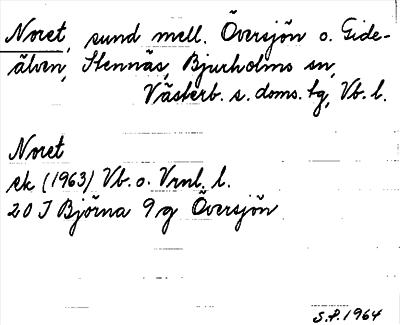 Noret, sund mell. Översjön o. Gide-
älven, Stennäs, Bjurholms sn,
Västerb. s. doms. tg, Vb. l.
Noret
ek (1963) Vb. o. Vrnl. l.
20 J Björna 9g Översjön
S.P. 1964